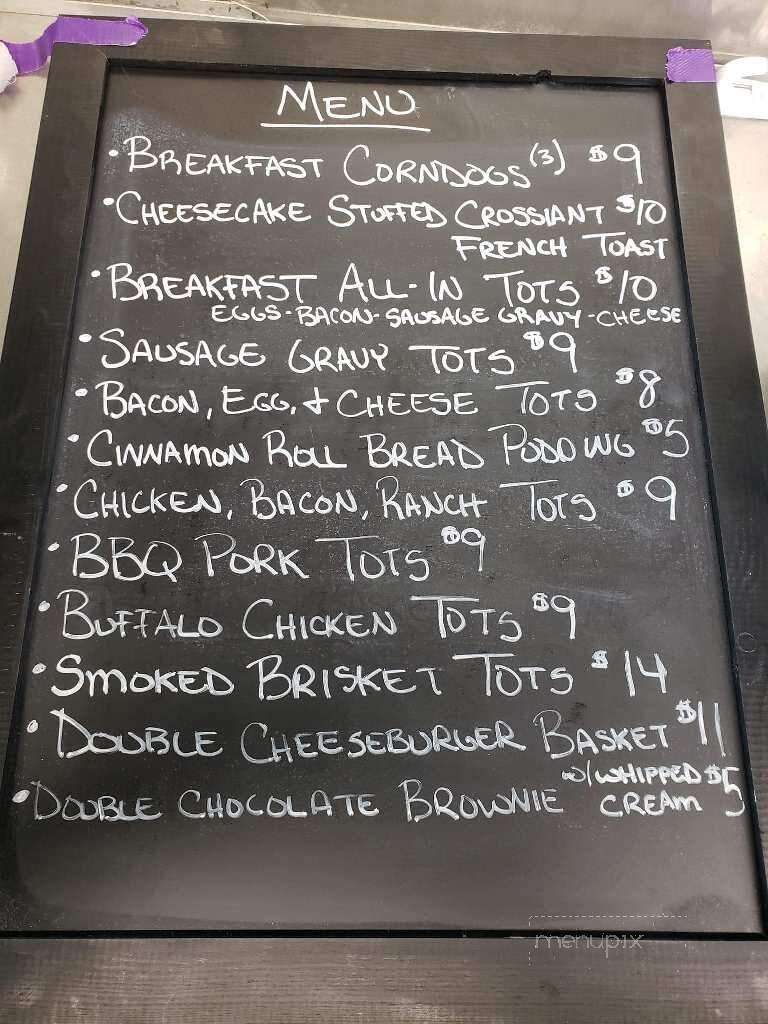 MENU
• BREAKFAST CORNDOGS (3) $9
• CHEESECAKE STUFFED CROSSIANT $10
FRENCH TOAST
• BREAKFAST ALL-IN TOTS $10
EGGS-BACON-SAUSAGE GRAVY-CHEESE
• SAUSAGE GRAVY TOTS $9
• BACON, EGG, & CHEESE TOTS $8
• CINNAMON ROLL BREAD PUDDING $5
• CHICKEN, BACON, RANCH TOTS $9
• BBQ PORK TOTS $9
• BUFFALO CHICKEN TOTS $9
• SMOKED BRISKET TOTS $14
• DOUBLE CHEESEBURGER BASKET $11
• DOUBLE CHOCOLATE BROWNIE W/WHIPPED CREAM $5
menupix